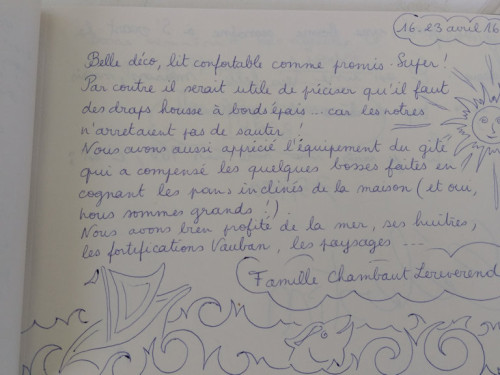 16.23 avril 16
Belle déco, lit confortable comme promis. Super !
Par contre il serait utile de préciser qu'il faut
des draps housse à bords épais... car les notres
n'arretaient pas de sauter !
Nous avons aussi apprécié l'équipement du gîte
qui a compensé les quelques bosses faites en
cognant les pans inclinés de la maison (et oui,
nous sommes grands !).
Nous avons bien profité de la mer, ses huitres,
les fortifications Vauban, les paysages ...
Famille Chambaut Lereverend